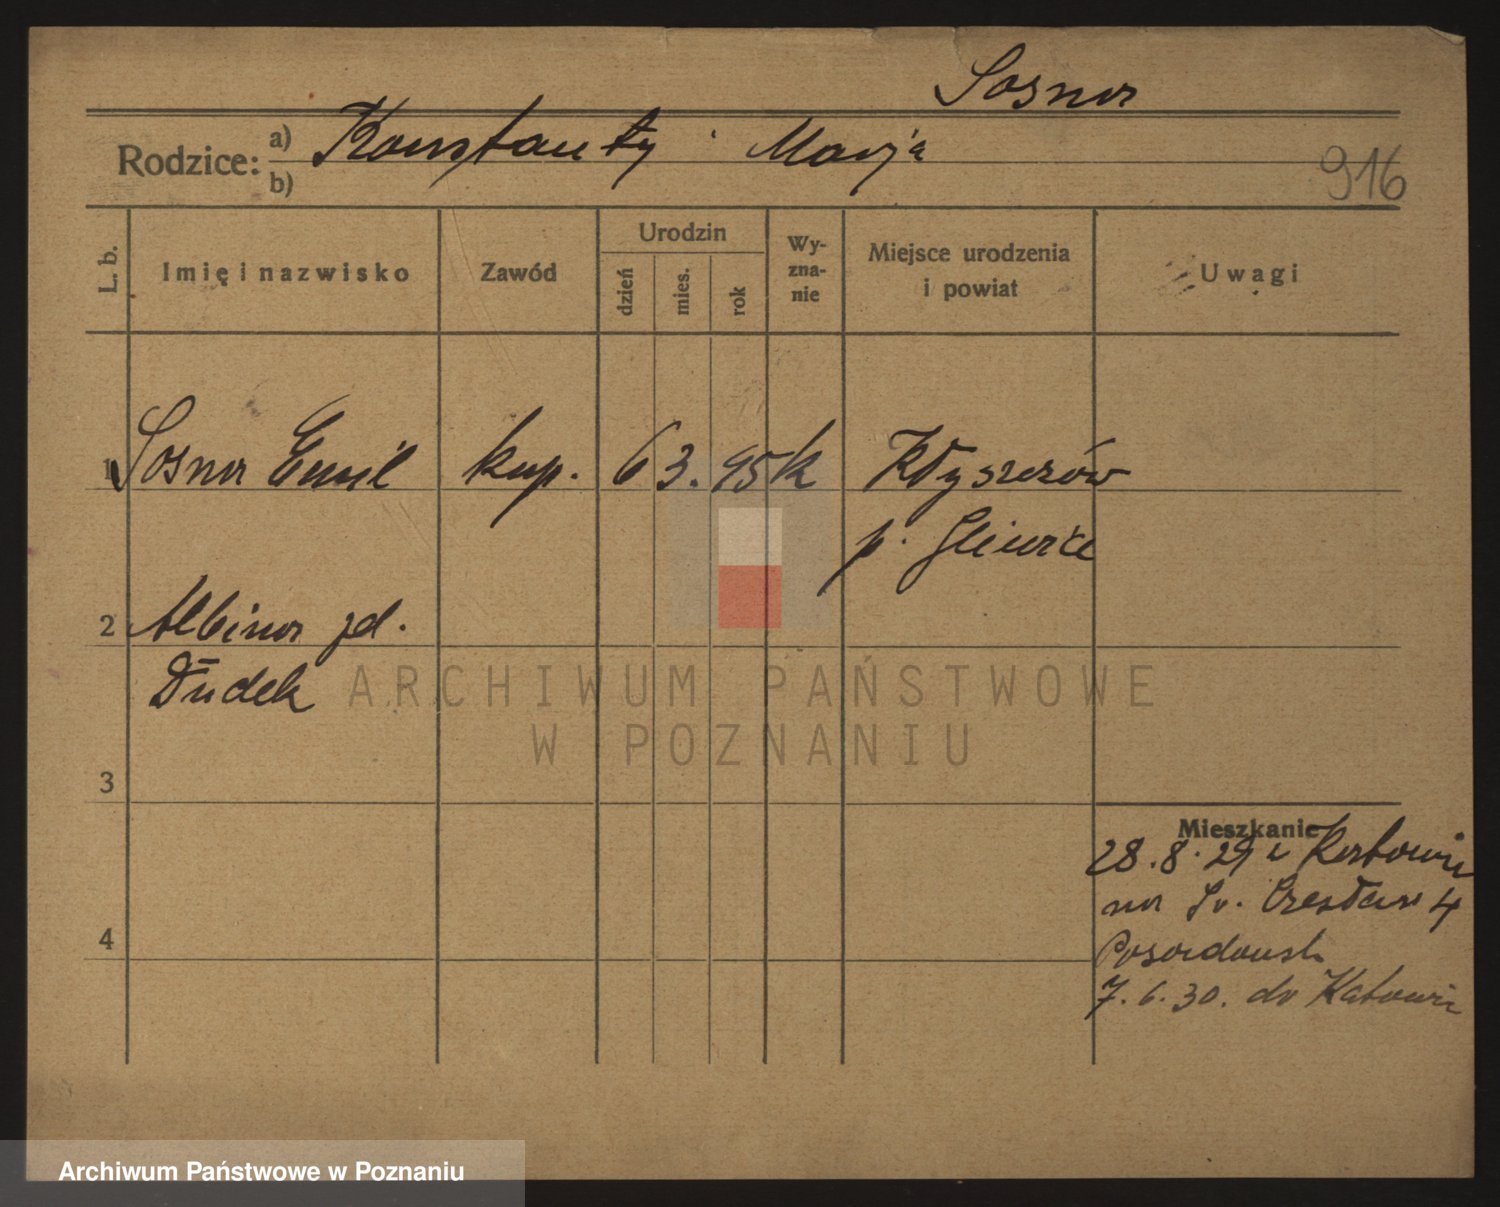 Sosna
Rodzice: a) Konstanty Marja
b)
916
L. b.
Imię i nazwisko
Zawód
Urodzin
dzień
mies.
rok
Wy-
zna-
nie
Miejsce urodzenia
i powiat
Uwagi
1 Sosna Emil kup. 6 3. 95 k
p. Gliwice
2 Albina zd.
Dudek
3
Mieszkanie
28.8.29 z Katowic
na Św. Czesława 4
7.6.30. do Katowic
4
ARCHIWUM PAŃSTWOWE
W POZNANIU
Archiwum Państwowe w Poznaniu